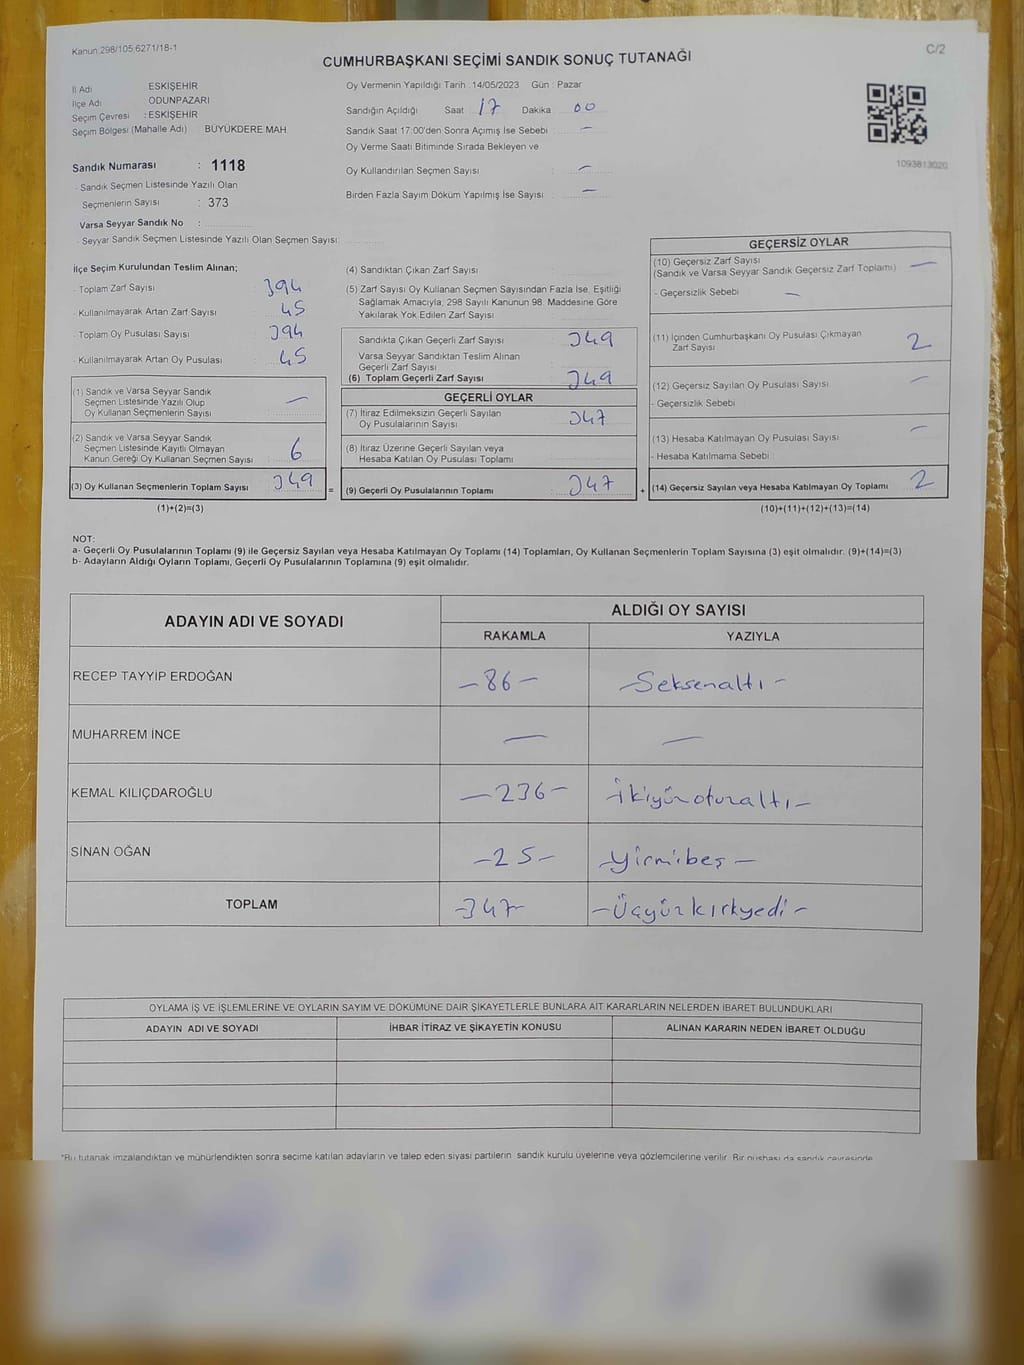 Kanun:298/105,6271/18-1
C/2
CUMHURBAŞKANI SEÇİMİ SANDIK SONUÇ TUTANAĞI
İl Adı ESKİŞEHİR
İlçe Adı ODUNPAZARI
Seçim Çevresi : ESKİŞEHİR
Seçim Bölgesi (Mahalle Adı) BÜYÜKDERE MAH
Sandık Numarası : 1118
- Sandık Seçmen Listesinde Yazılı Olan
Seçmenlerin Sayısı : 373
Varsa Seyyar Sandık No :
- Seyyar Sandık Seçmen Listesinde Yazılı Olan Seçmen Sayısı:
Oy Vermenin Yapıldığı Tarih : 14/05/2023 Gün : Pazar
Sandığın Açıldığı Saat 17 Dakika 00
Sandık Saat 17:00'den Sonra Açımış İse Sebebi : —
Oy Verme Saati Bitiminde Sırada Bekleyen ve
Oy Kullandırılan Seçmen Sayısı : —
Birden Fazla Sayım Döküm Yapılmış İse Sayısı : —
1093813020
İlçe Seçim Kurulundan Teslim Alınan;
- Toplam Zarf Sayısı : 394
- Kullanılmayarak Artan Zarf Sayısı : 45
- Toplam Oy Pusulası Sayısı : 394
- Kullanılmayarak Artan Oy Pusulası : 45
(1) Sandık ve Varsa Seyyar Sandık
Seçmen Listesinde Yazılı Olup
Oy Kullanan Seçmenlerin Sayısı : —
(2) Sandık ve Varsa Seyyar Sandık
Seçmen Listesinde Kayıtlı Olmayan
Kanun Gereği Oy Kullanan Seçmen Sayısı : 6
(3) Oy Kullanan Seçmenlerin Toplam Sayısı 349 =
(1)+(2)=(3)
(4) Sandıktan Çıkan Zarf Sayısı :
(5) Zarf Sayısı Oy Kullanan Seçmen Sayısından Fazla İse, Eşitliği
Sağlamak Amacıyla, 298 Sayılı Kanunun 98. Maddesine Göre
Yakılarak Yok Edilen Zarf Sayısı :
Sandıkta Çıkan Geçerli Zarf Sayısı : 349
Varsa Seyyar Sandıktan Teslim Alınan
Geçerli Zarf Sayısı :
(6) Toplam Geçerli Zarf Sayısı : 349
GEÇERLİ OYLAR
(7) İtiraz Edilmeksizin Geçerli Sayılan
Oy Pusulalarının Sayısı : 347
(8) İtiraz Üzerine Geçerli Sayılan veya
Hesaba Katılan Oy Pusulası Toplamı :
(9) Geçerli Oy Pusulalarının Toplamı : 347 +
GEÇERSİZ OYLAR
(10) Geçersiz Zarf Sayısı :
(Sandık ve Varsa Seyyar Sandık Geçersiz Zarf Toplamı) —
- Geçersizlik Sebebi : —
(11) İçinden Cumhurbaşkanı Oy Pusulası Çıkmayan
Zarf Sayısı : 2
(12) Geçersiz Sayılan Oy Pusulası Sayısı : —
- Geçersizlik Sebebi :
(13) Hesaba Katılmayan Oy Pusulası Sayısı : —
- Hesaba Katılmama Sebebi :
(14) Geçersiz Sayılan veya Hesaba Katılmayan Oy Toplamı : 2
(10)+(11)+(12)+(13)=(14)
NOT:
a- Geçerli Oy Pusulalarının Toplamı (9) ile Geçersiz Sayılan veya Hesaba Katılmayan Oy Toplamı (14) Toplamları, Oy Kullanan Seçmenlerin Toplam Sayısına (3) eşit olmalıdır. (9)+(14)=(3)
b- Adayların Aldığı Oyların Toplamı, Geçerli Oy Pusulalarının Toplamına (9) eşit olmalıdır.
ADAYIN ADI VE SOYADI ALDIĞI OY SAYISI
RAKAMLA YAZIYLA
RECEP TAYYİP ERDOĞAN –86– –Seksenaltı–
MUHARREM İNCE — —
KEMAL KILIÇDAROĞLU –236– –İkiyüzotuzaltı–
SİNAN OĞAN –25– –Yirmibeş–
TOPLAM –347– –Üçyüzkırkyedi–
OYLAMA İŞ VE İŞLEMLERİNE VE OYLARIN SAYIM VE DÖKÜMÜNE DAİR ŞİKAYETLERLE BUNLARA AİT KARARLARIN NELERDEN İBARET BULUNDUKLARI
ADAYIN ADI VE SOYADI İHBAR İTİRAZ VE ŞİKAYETİN KONUSU ALINAN KARARIN NEDEN İBARET OLDUĞU
*Bu tutanak imzalandıktan ve mühürlendikten sonra seçime katılan adayların ve talep eden siyasi partilerin sandık kurulu üyelerine veya gözlemcilerine verilir. Bir nüshası da sandık çevresinde